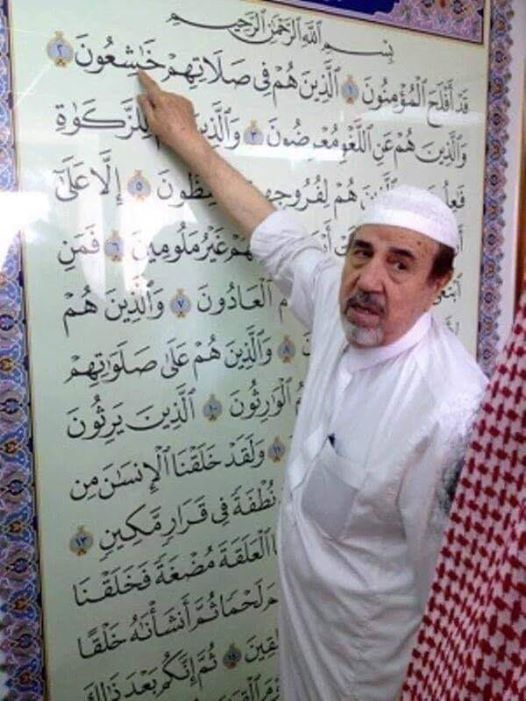 بِسْمِ ٱللَّهِ ٱلرَّحْمَٰنِ ٱلرَّحِيمِ
قَدْ أَفْلَحَ ٱلْمُؤْمِنُونَ ١ ٱلَّذِينَ هُمْ فِى صَلَاتِهِمْ خَٰشِعُونَ ٢
وَٱلَّذِينَ هُمْ عَنِ ٱللَّغْوِ مُعْرِضُونَ ٣ وَٱلَّذِينَ لِلزَّكَوٰةِ
هُمْ لِفُرُوجِهِمْ ٥ إِلَّا عَلَىٰٓ
غَيْرُ مَلُومِينَ ٦ فَمَنِ
ٱلْعَادُونَ ٧ وَٱلَّذِينَ هُمْ
٨ وَٱلَّذِينَ هُمْ عَلَىٰ صَلَوَٰتِهِمْ
ٱلْوَٰرِثُونَ ١٠ ٱلَّذِينَ يَرِثُونَ
١١ وَلَقَدْ خَلَقْنَا ٱلْإِنسَٰنَ مِن
نُطْفَةً فِى قَرَارٍ مَّكِينٍ ١٣
ٱلْعَلَقَةَ مُضْغَةً فَخَلَقْنَا
لَحْمًا ثُمَّ أَنشَأْنَٰهُ خَلْقًا
ثُمَّ إِنَّكُم بَعْدَ ذَٰلِكَ